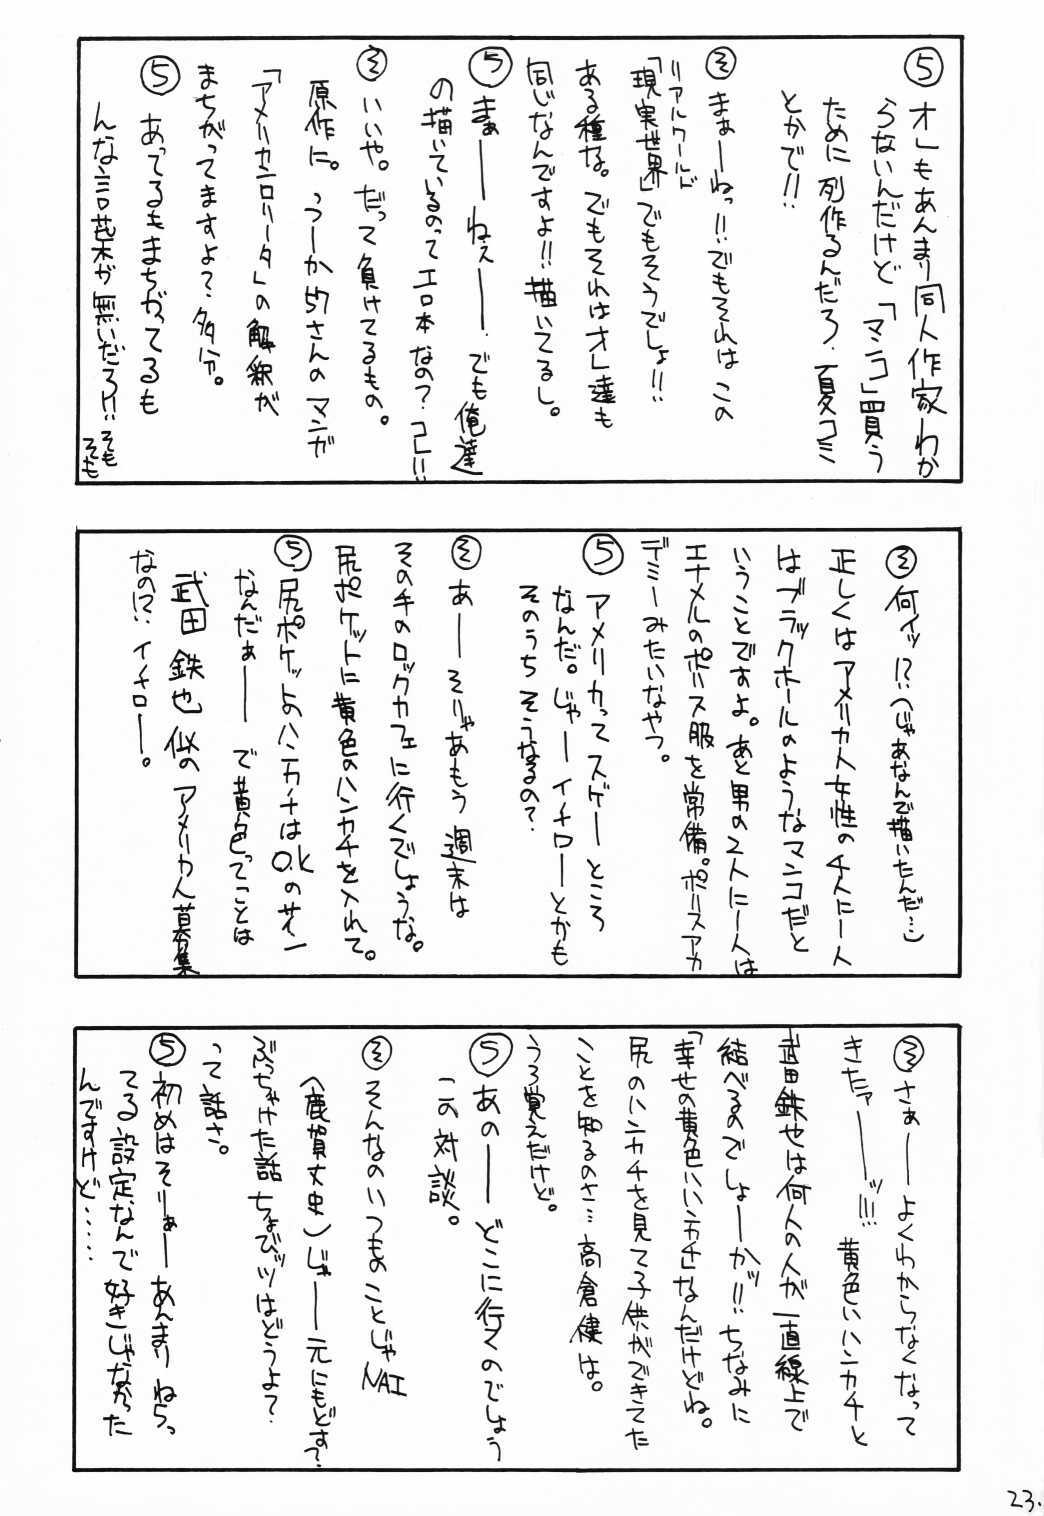 ⑤オレもあんまり同人作家わか
らないんだけど「マンコ」買う
ために列作るんだろ.夏コミ
とかで!!
㋲まぁーねっ!!でもそれは この
「現実世界」でもそうでしょ!!
リアルワールド
ある種な。でもそれはオレ達も
同じなんですよ!!描いてるし。
⑤まぁーーねぇーー.でも俺達
の描いているのってエロ本なの?コレ!!
㋲いいや。だって負けてるもの。
原作に。つーか⑤さんのマンガ
「アメリカンロリータ」の解釈が
まちがってますよ?多分。
⑤あってるもまちがってるも
んな言葉が無いだろ!!そも
そも
㋲何ィッ!?(じゃあなんで描いたんだ…)
正しくはアメリカ人女性の4人に一人
はブラックホールのようなマンコだと
いうことですよ。あと男の2人に一人は
エナメルのポリス服を常備。ポリスアカ
デミーみたいなやつ。
⑤アメリカってスゲーところ
なんだ。じゃーイチローとかも
そのうちそうなるの?
㋲あーーそりゃあもう週末は
そのキのロックカフェに行くでしょうな。
尻ポケットに黄色のハンカチを入れて。
⑤尻ポケットのハンカチはO.Kのサイン
なんだぁーーで黄色ってことは
武田鉄也似のアメリカ人募集
なの!?イチロー。
㋲さぁーーよくわからなくなって
きたァーーッ!!!黄色いハンカチと
武田鉄也は何人の人が一直線上で
結べるのでしょーかッ!!ちなみに
「幸せの黄色いハンカチ」なんだけどね。
尻のハンカチを見て子供ができてた
ことを知るのさ…高倉健は。
うろ覚えだけど。
⑤あのーーどこに行くのでしょう
この対談。
㋲そんなのいつものことじゃNAI
(鹿賀丈史)じゃーー元にもどす?
ぶっちゃけた話ちょびッツはどうよ?
って話さ。
⑤初めはそりぁーあんまりねらっ
てる設定なんで好きじゃなかった
んですけど……
23.